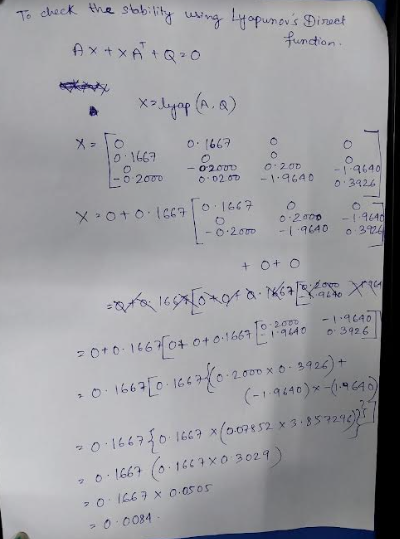 To check the stability using Lyapunov's Direct
function.
Ax + xAᵀ + Q = 0
x = lyap (A, Q)
X = [0 0.1667 0 0
0.1667 0 0 0
0 -0.2000 0.200 -1.9640
-0.2000 0.0200 -1.9640 0.3926]
X = 0 + 0.1667 [0.1667 0 0
0 0.2000 -1.9640
-0.2000 -1.9640 0.3926]
+ 0 + 0
= 0 + 0.1667 [0 + 0 + 0.1667 [0.2000 -1.9640
-1.9640 0.3926]
= 0.1667 [0.1667 {(0.2000 × 0.3926) +
(-1.9640) × -(1.9640)
= 0.1667 {0.1667 × (0.07852 × 3.857296)}]
= 0.1667 (0.1667 × 0.3029)
= 0.1667 × 0.0505
= 0.0084.